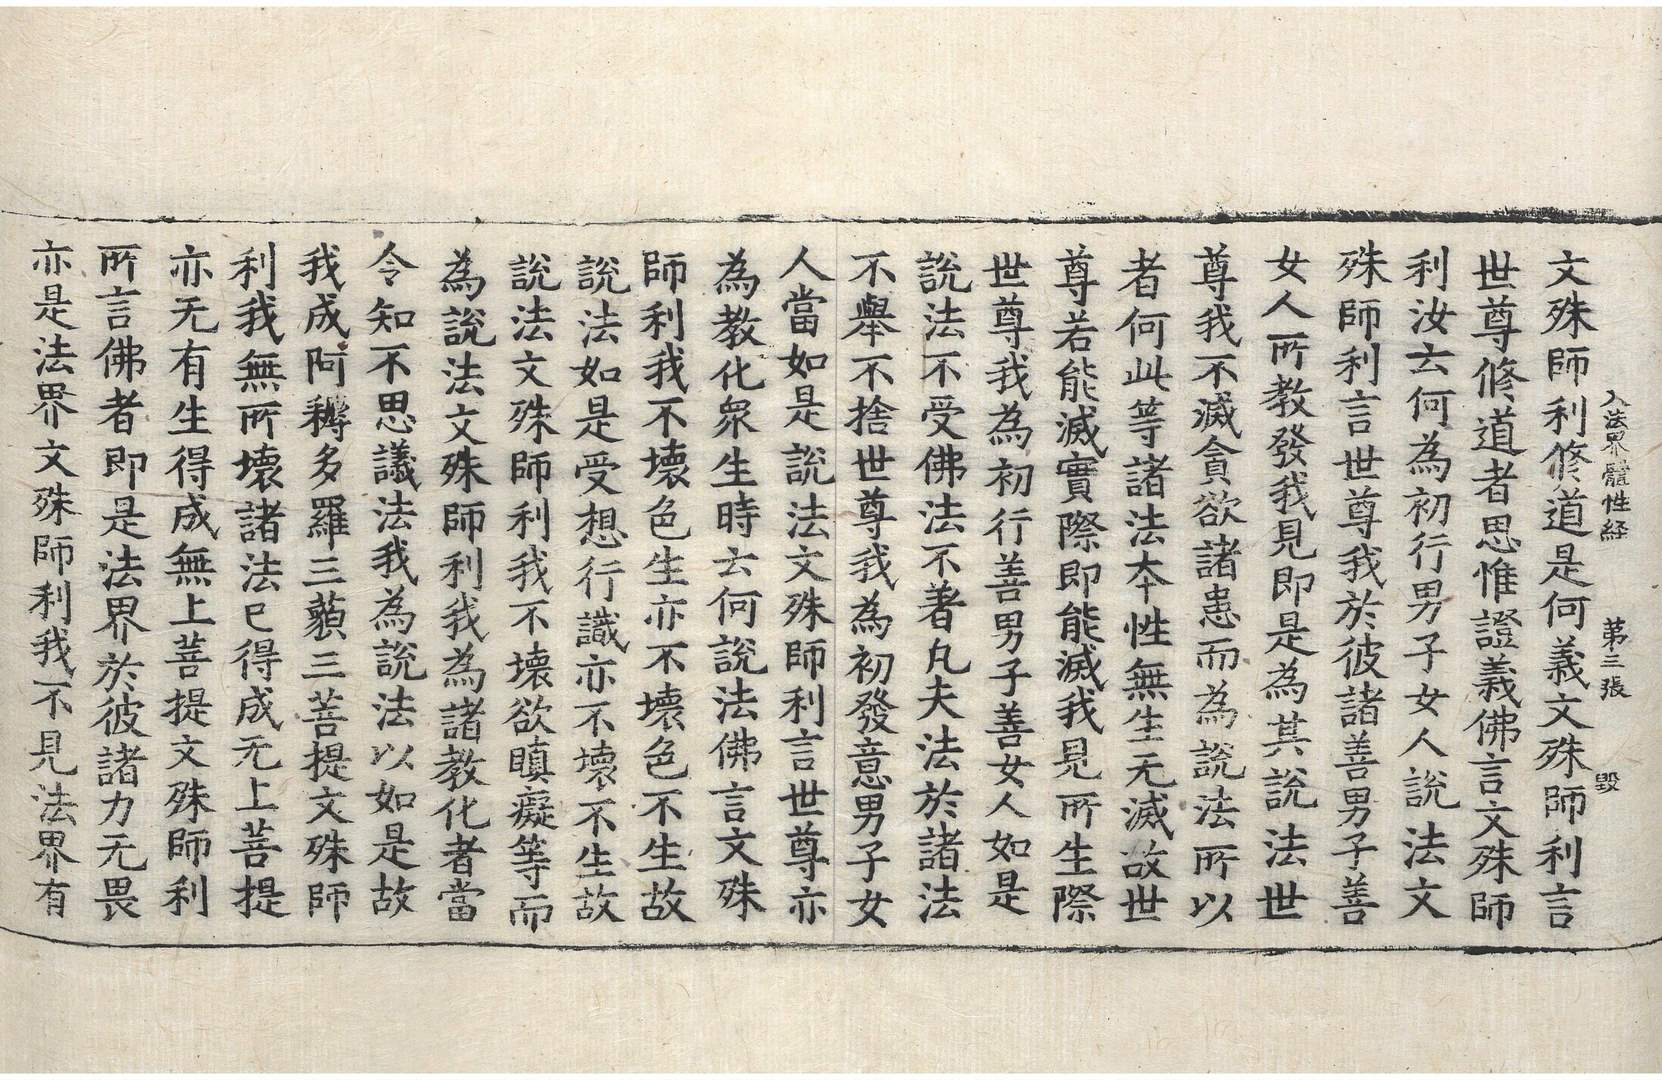 入法界體性経 第三張 毀
文殊師利修道是何義文殊師利言
世尊修道者思惟證義佛言文殊師
利汝云何為初行男子女人說法文
殊師利言世尊我於彼諸善男子善
女人所教發我見即是為其說法世
尊我不滅貪欲諸患而為說法所以
者何此等諸法夲性無生无滅故世
尊若能滅實際即能滅我見所生際
世尊我為初行善男子善女人如是
說法不受佛法不著凡夫法於諸法
不舉不捨世尊我為初發意男子女
人當如是說法文殊師利言世尊亦
為教化眾生時云何說法佛言文殊
師利我不壞色生亦不壞色不生故
說法如是受想行識亦不壞不生故
說法文殊師利我不壞欲瞋癡等而
為說法文殊師利我為諸教化者當
令知不思議法我為說法以如是故
我成阿耨多羅三藐三菩提文殊師
利我無所壞諸法已得成无上菩提
亦无有生得成無上菩提文殊師利
所言佛者即是法界於彼諸力无畏
亦是法界文殊師利我不見法界有